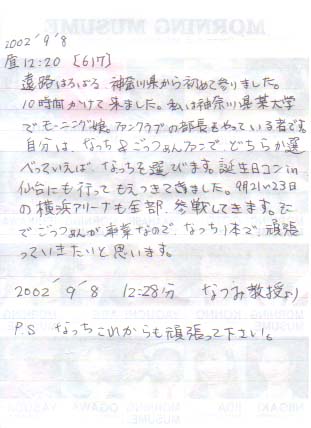 2002' 9' 8
昼12:20 [617]
遠路はるばる、神奈川県から初めて参りました。
10時間かけて来ました。私は神奈川県某大学
でモーニング娘。ファンクラブの部長をやっている者です。
自分は、なっち&ごっつぁんファンで、どちらか選
べっていえば、なっちを選びます。誕生日コンin
仙台にも行ってもえつきてきました。9月21〜23日
の横浜アリーナも全部、参戦してきます。そこ
でごっつぁんが卒業なので、なっち1本で、頑張
っていきたいと思います。
2002' 9' 8 12:28分 なつみ教授より
P.S なっちこれからも頑張って下さい。
MORNING MUSUME